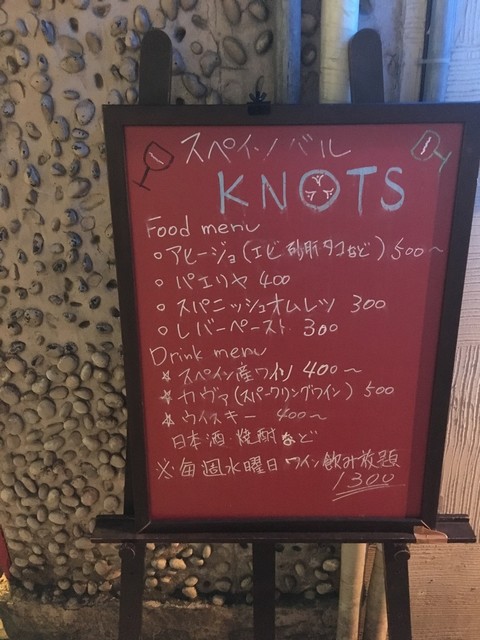 スペインバル
KNOTS
Food menu
○ アヒージョ(エビ 砂肝 タコなど) 500~
○ パエリヤ 400
○ スパニッシュオムレツ 300
○ レバーペースト 300
Drink menu
☆ スペイン産ワイン 400~
☆ カヴァ(スパークリングワイン) 500
☆ ウイスキー 400~
日本酒・焼酎など
※毎週水曜日 ワイン飲み放題
1300